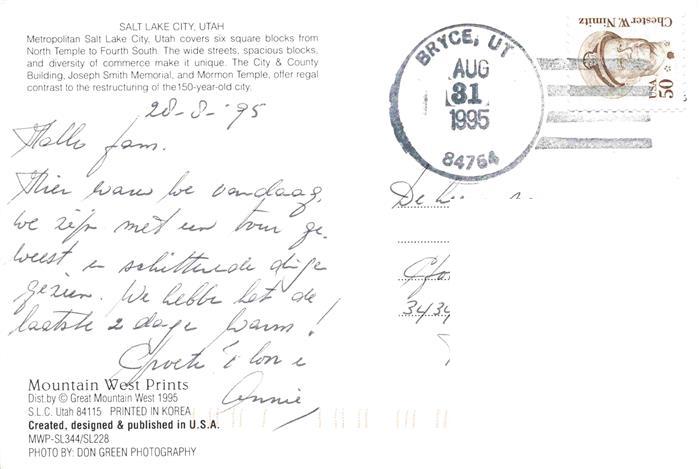 SALT LAKE CITY, UTAH
Metropolitan Salt Lake City, Utah covers six square blocks from
North Temple to Fourth South. The wide streets, spacious blocks,
and diversity of commerce make it unique. The City & County
Building, Joseph Smith Memorial, and Mormon Temple, offer regal
contrast to the restructuring of the 150-year-old city.
28-8-'95
Hallo fam.
Hier waren we vandaag,
we zijn met een tour ge-
weest en schitterende dinge
gezien. We hebbe het de
laatste 2 dage warm!
Groete
Annie
Mountain West Prints
Dist.by © Great Mountain West 1995
S.L.C. Utah 84115 PRINTED IN KOREA
Created, designed & published in U.S.A.
MWP-SL344/SL228
PHOTO BY: DON GREEN PHOTOGRAPHY
BRYCE, UT
AUG
31
1995
84764
Chester W. Nimitz
USA 50
De
3434